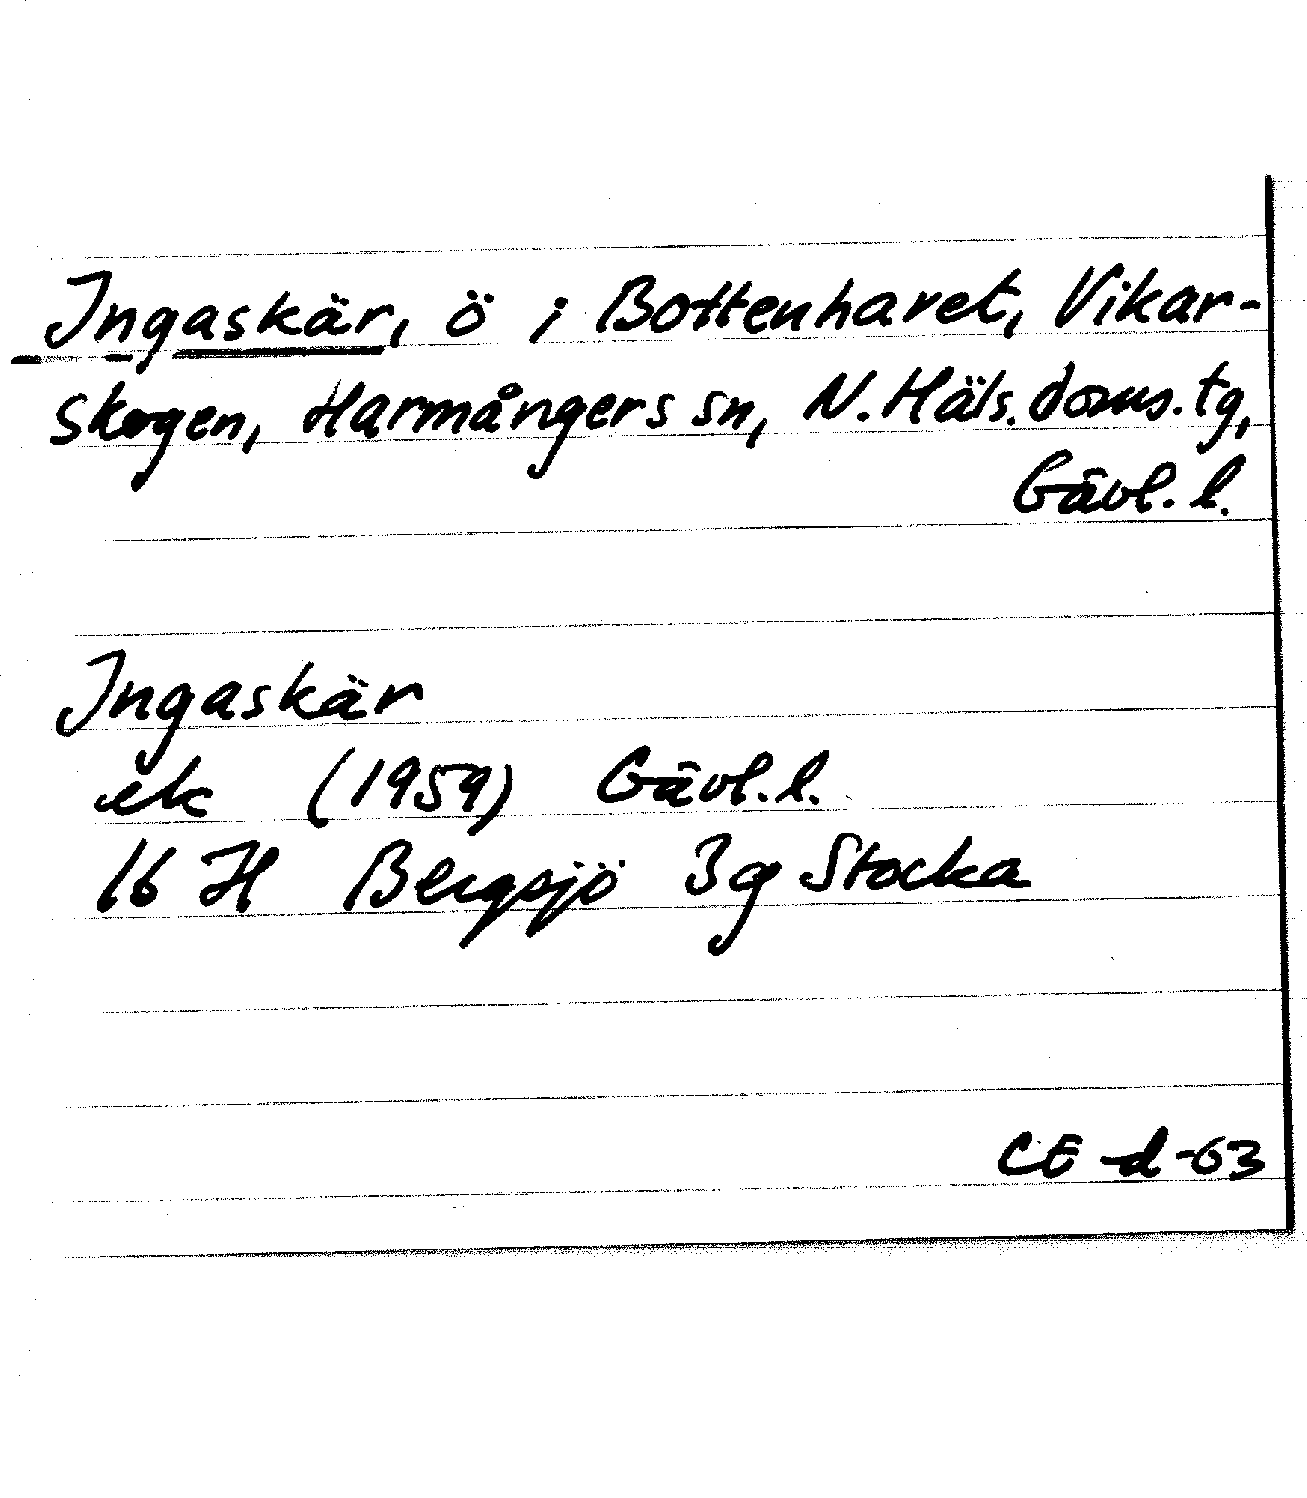 Ingaskär, ö i Bottenhavet, Vikar-
skogen, Harmångers sn, N. Häls. doms. tg,
Gävl. l.
Ingaskär
ek (1959) Gävl. l.
16 H Bergsjö 3g Stocka
CE -d-63